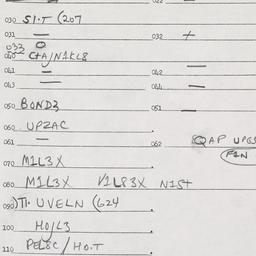 022
030 SI·T (207
031 — 032 +
033 O
040 C+A/N1KL8
041 — 042 —
043 — 044 —
050 BOND3 051 —
060 UPZAC
061 — 062 QAP UPGS
(FIN
070 M1L3X
080 M1L3X V1L83X N1ST
090 )TI· UVELN (624
100 HO/L3
110 PEL8C / HO.T